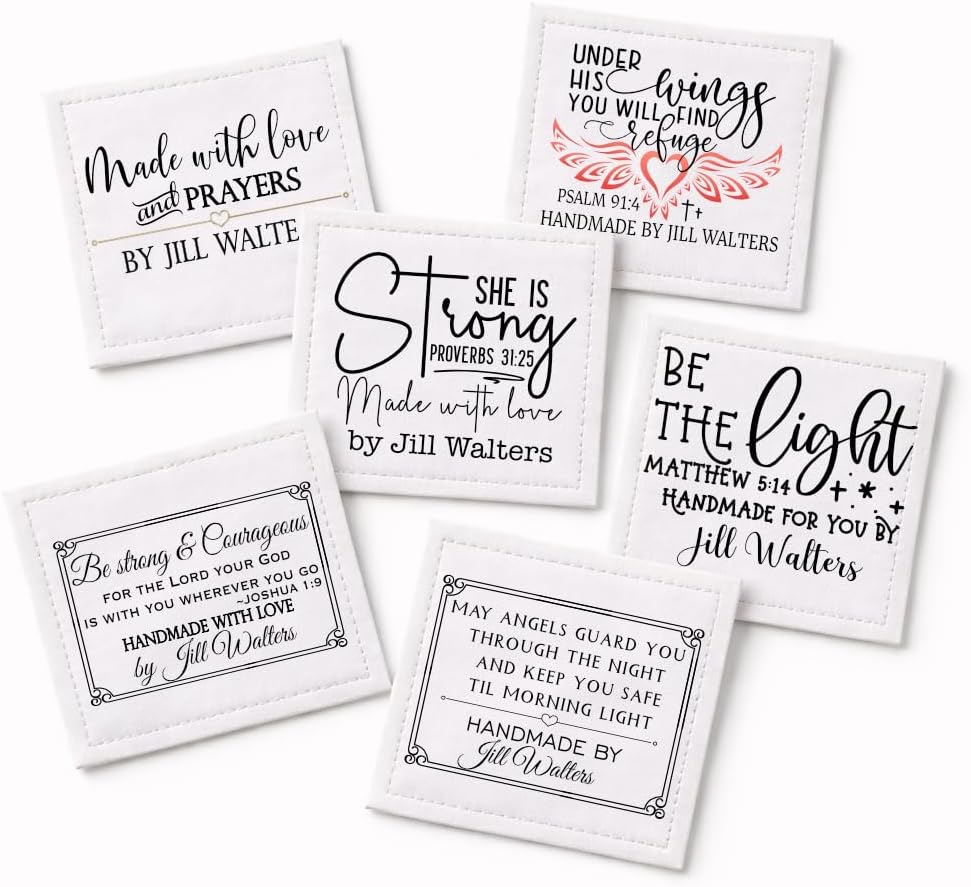 Made with love
and PRAYERS
BY JILL WALTE
UNDER
HIS wings
YOU WILL FIND
refuge
PSALM 91:4
HANDMADE BY JILL WALTERS
SHE IS
Strong
PROVERBS 31:25
Made with love
by Jill Walters
BE
THE light
MATTHEW 5:14
HANDMADE FOR YOU BY
Jill Walters
Be strong & Courageous
FOR THE LORD YOUR GOD
IS WITH YOU WHEREVER YOU GO
~JOSHUA 1:9
HANDMADE WITH LOVE
by Jill Walters
MAY ANGELS GUARD YOU
THROUGH THE NIGHT
AND KEEP YOU SAFE
TIL MORNING LIGHT
HANDMADE BY
Jill Walters